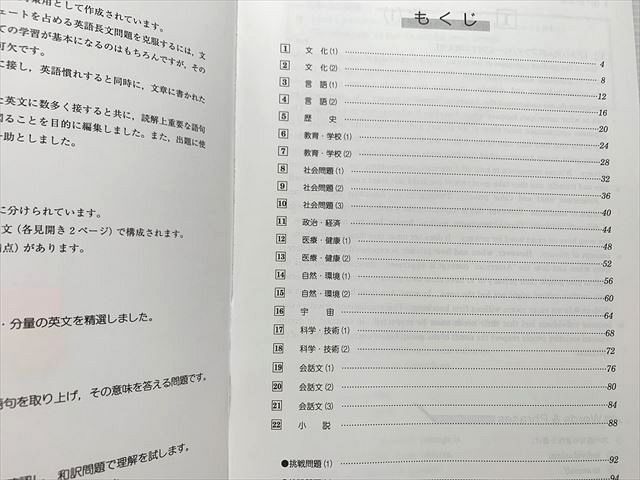 用として作成されています。
ェートを占める英語長文問題を克服するには，文
ての学習が基本になるのはもちろんですが，その
可欠です。
に接し，英語慣れすると同時に，文章に書かれた
英文に数多く接すると共に，読解上重要な語句
ることを目的に編集しました。また，出題に使
一助としました。
に分けられています。
文（各見開き2ページ）で構成されます。
点）があります。
・分量の英文を精選しました。
語句を取り上げ，その意味を答える問題です。
和訳問題で理解を試します。
もくじ
1 文化(1) 4
2 文化(2) 8
3 言語(1) 12
4 言語(2) 16
5 歴史 20
6 教育・学校(1) 24
7 教育・学校(2) 28
8 社会問題(1) 32
9 社会問題(2) 36
10 社会問題(3) 40
11 政治・経済 44
12 医療・健康(1) 48
13 医療・健康(2) 52
14 自然・環境(1) 56
15 自然・環境(2) 60
16 宇宙 64
17 科学・技術(1) 68
18 科学・技術(2) 72
19 会話文(1) 76
20 会話文(2) 80
21 会話文(3) 84
22 小説 88
●挑戦問題(1) 92
94